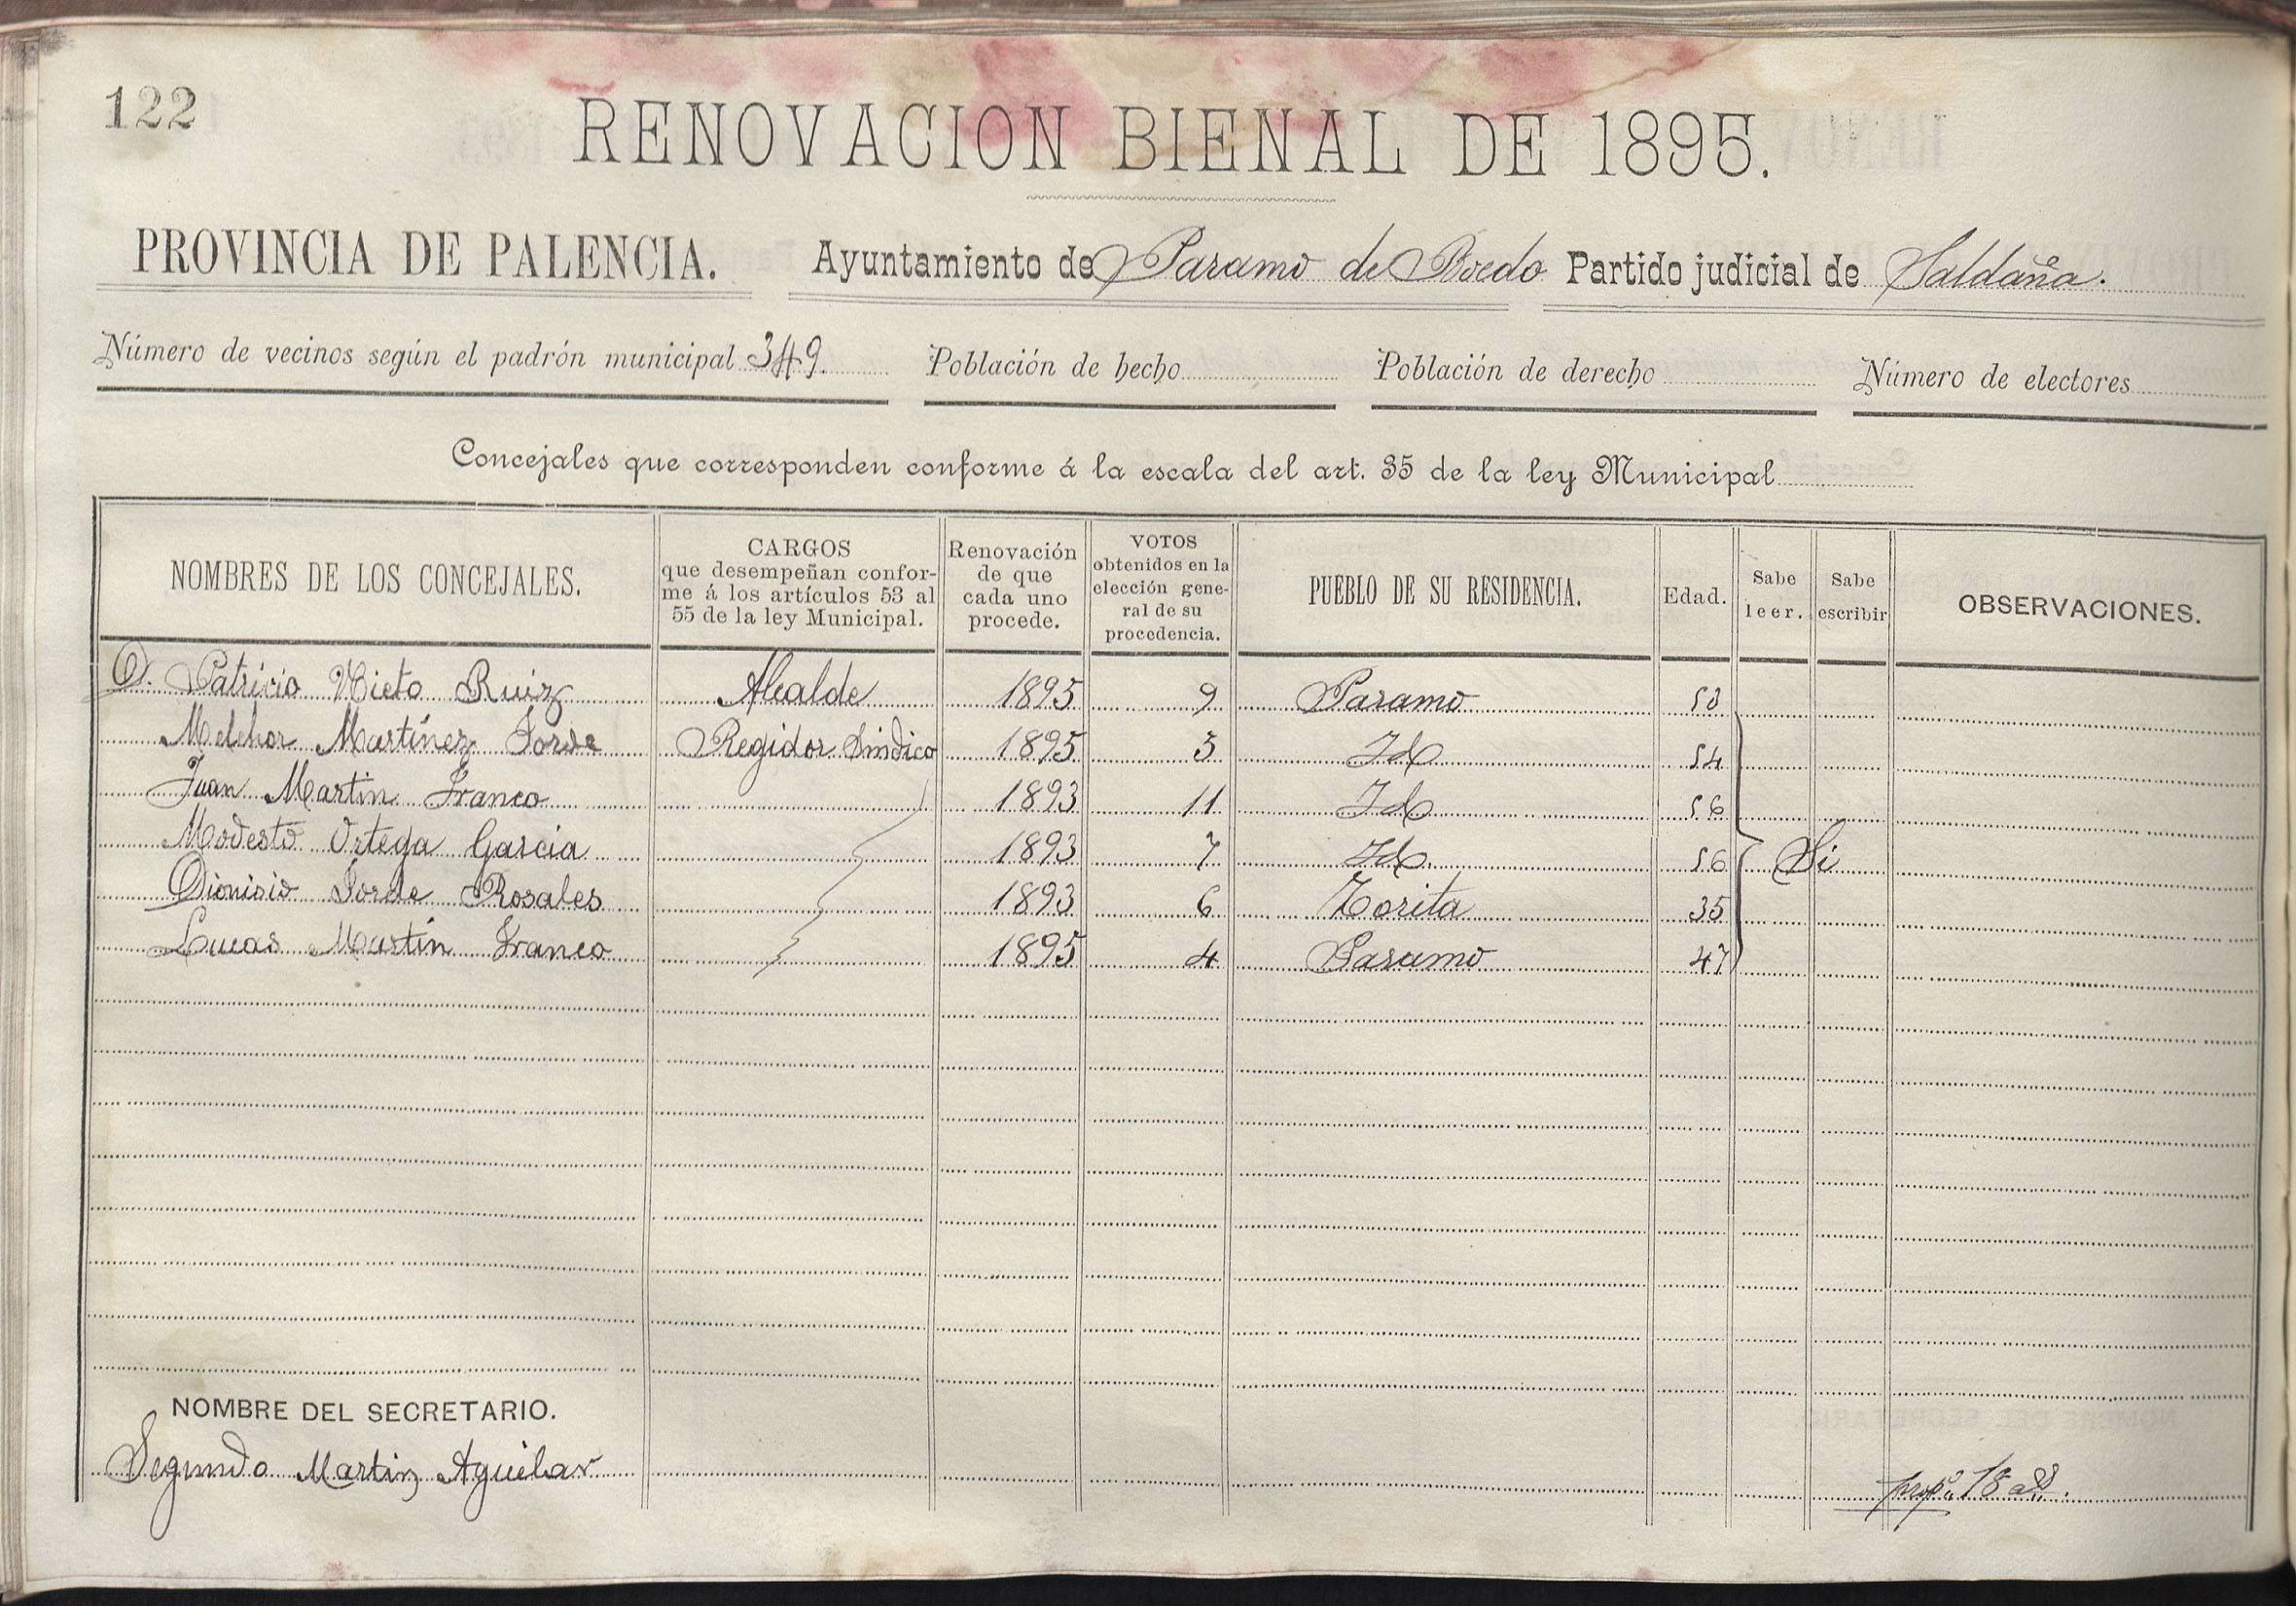 122
RENOVACION BIENAL DE 1895.
PROVINCIA DE PALENCIA. Ayuntamiento de Paramo de Boedo Partido judicial de Saldaña.
Número de vecinos según el padrón municipal 349. Población de hecho Población de derecho Número de electores
Concejales que corresponden conforme á la escala del art. 35 de la ley Municipal
NOMBRES DE LOS CONCEJALES. CARGOS que desempeñan confor-me á los artículos 53 al 55 de la ley Municipal. Renovación de que cada uno procede. VOTOS obtenidos en la elección gene-ral de su procedencia. PUEBLO DE SU RESIDENCIA. Edad. Sabe leer. Sabe escribir OBSERVACIONES.
D. Patricio Nieto Ruiz Alcalde 1895 9 Paramo 53
Melchor Martínez Jorde Regidor Sindico 1895 5 Id 54
Juan Martin Franco 1893 11 Id 56
Modesto Ortega García 1893 7 Id. 56 Si
Dionisio Jorde Rosales 1893 6 Zorita 35
Lucas Martín Franco 1895 4 Paramo 47
NOMBRE DEL SECRETARIO.
Segundo Martin Aguilar
18